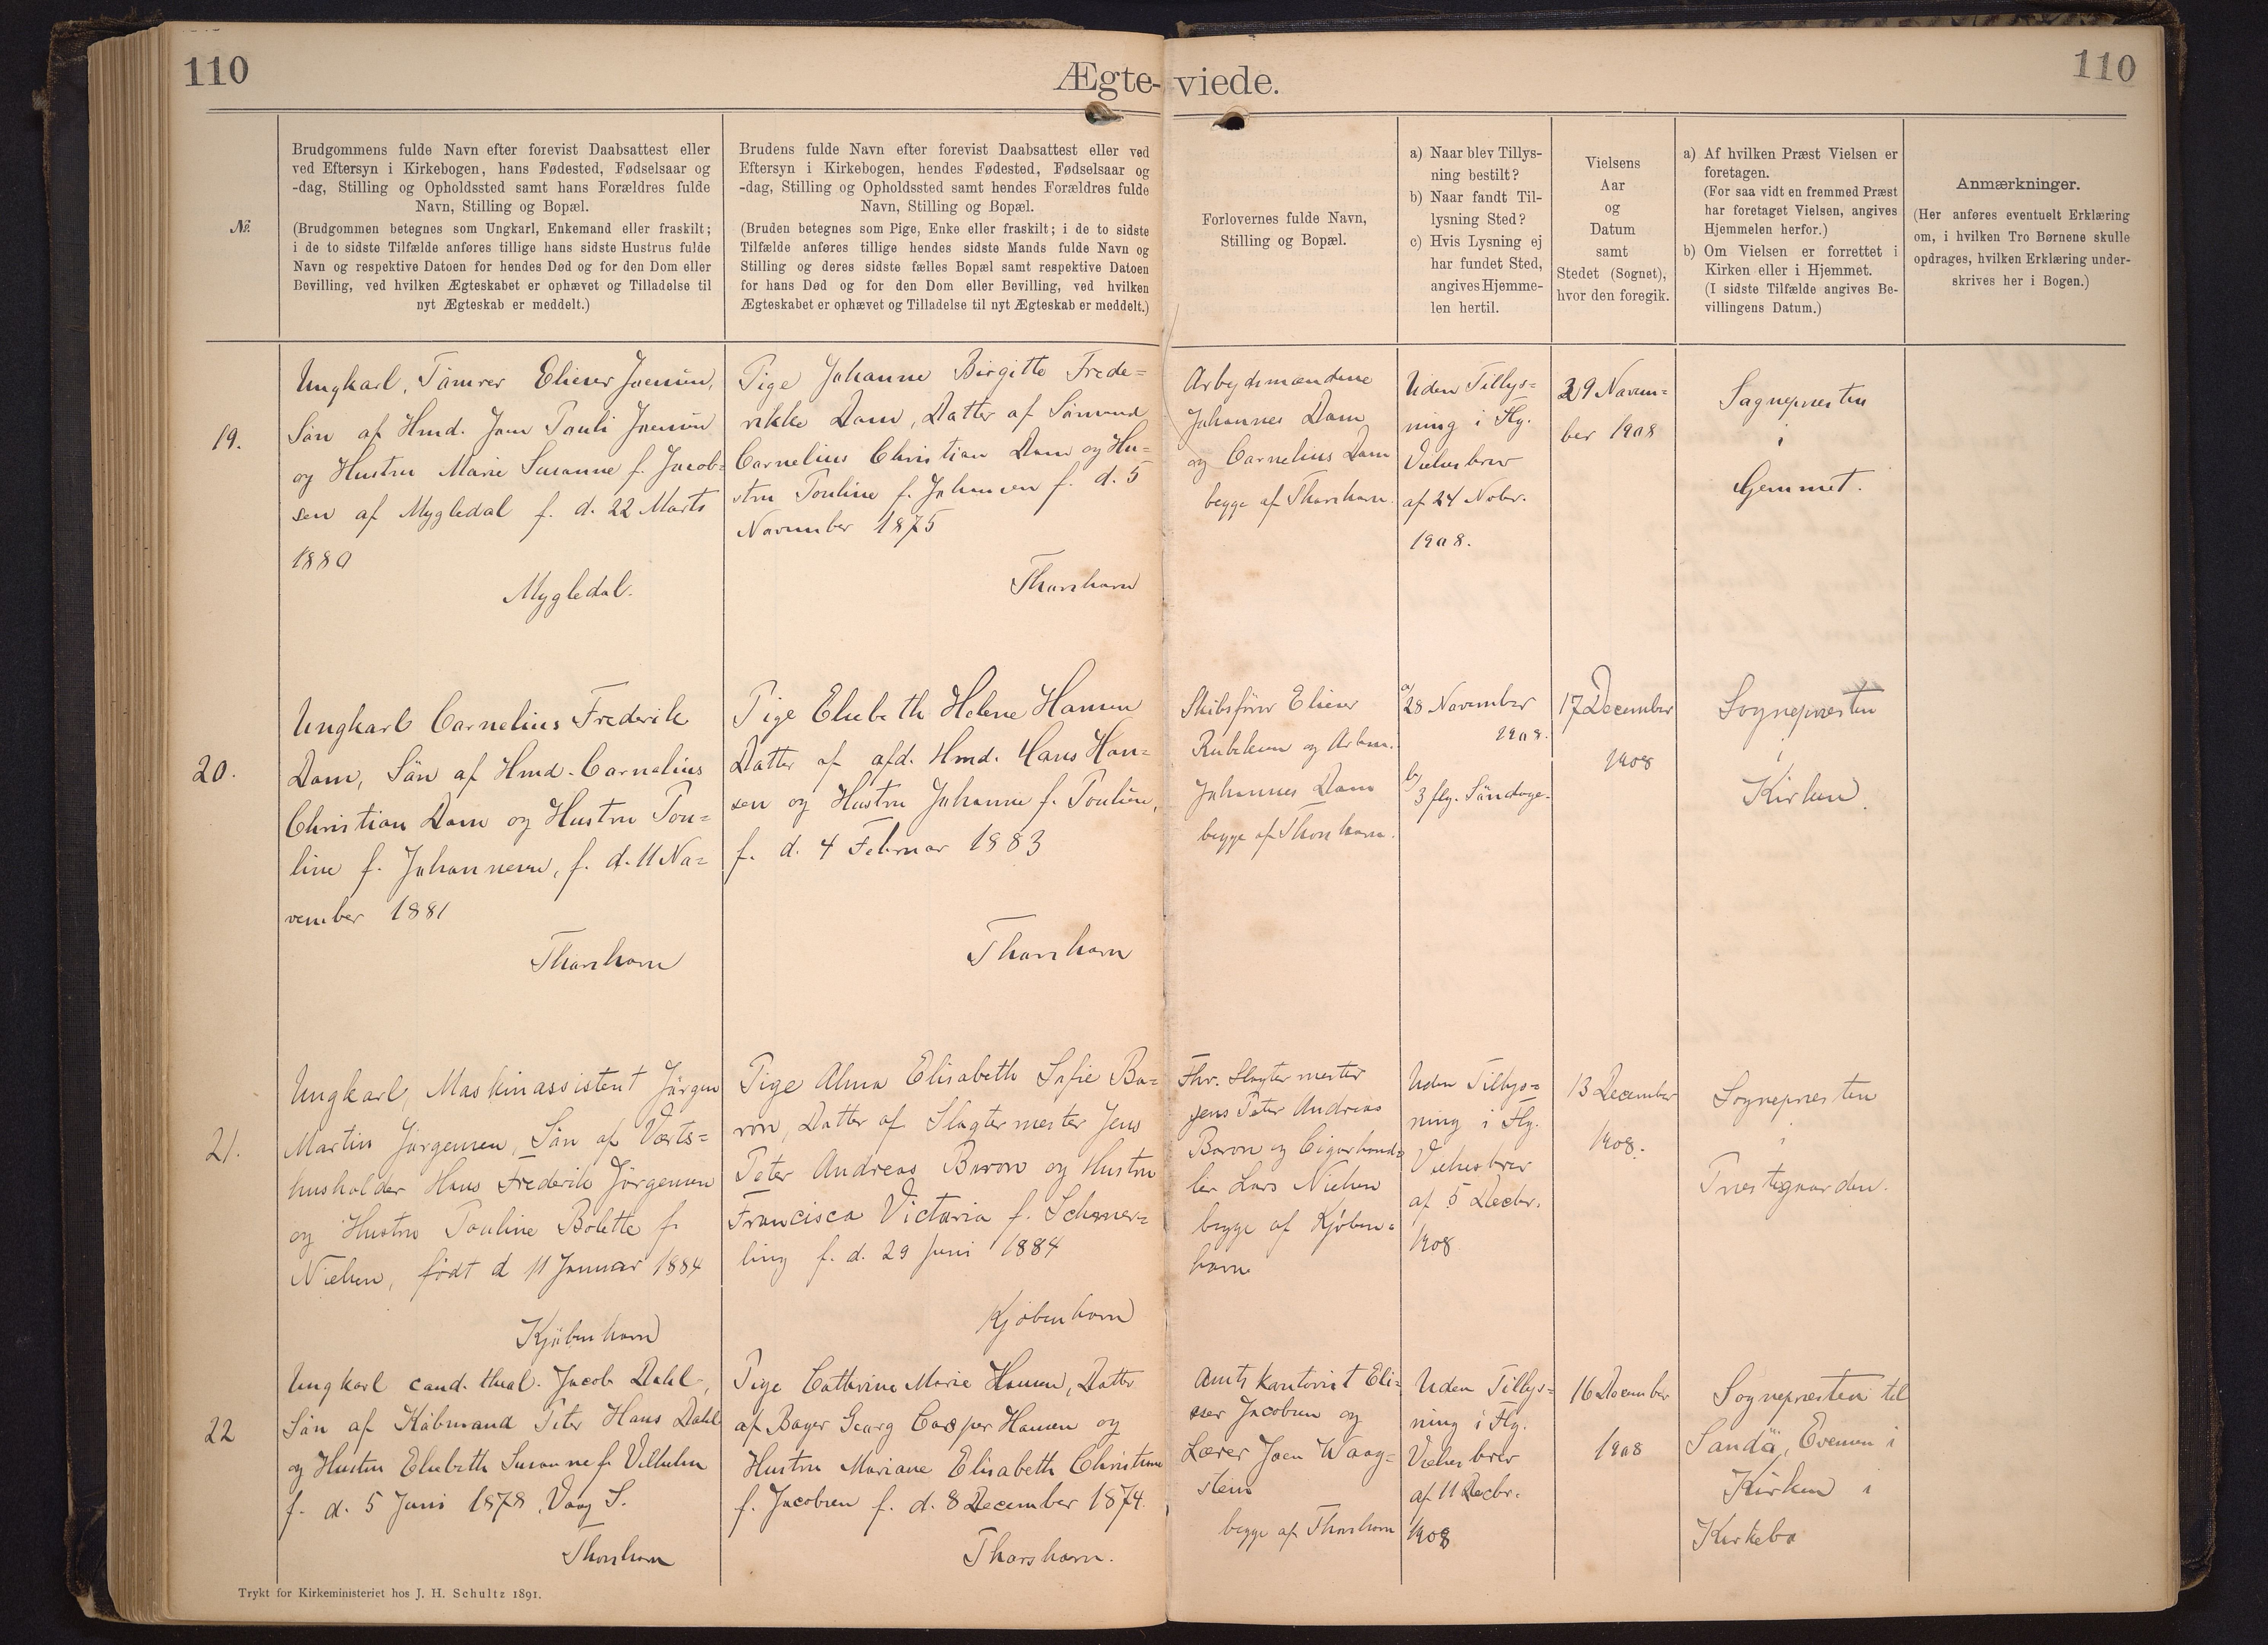 110
Ægte-viede.
110
№
Brudgommens fulde Navn efter forevist Daabsattest eller
ved Eftersyn i Kirkebogen, hans Fødested, Fødselsaar og
-dag, Stilling og Opholdssted samt hans Forældres fulde
Navn, Stilling og Bopæl.
(Brudgommen betegnes som Ungkarl, Enkemand eller fraskilt;
i de to sidste Tilfælde anføres tillige hans sidste Hustrus fulde
Navn og respektive Datoen for hendes Død og for den Dom eller
Bevilling, ved hvilken Ægteskabet er ophævet og Tilladelse til
nyt Ægteskab er meddelt.)
Brudens fulde Navn efter forevist Daabsattest eller ved
Eftersyn i Kirkebogen, hendes Fødested, Fødselsaar og
-dag, Stilling og Opholdssted samt hendes Forældres fulde
Navn, Stilling og Bopæl.
(Bruden betegnes som Pige, Enke eller fraskilt; i de to sidste
Tilfælde anføres tillige hendes sidste Mands fulde Navn og
Stilling og deres sidste fælles Bopæl samt respektive Datoen
for hans Død og for den Dom eller Bevilling, ved hvilken
Ægteskabet er ophævet og Tilladelse til nyt Ægteskab er meddelt.)
Forlovernes fulde Navn,
Stilling og Bopæl.
a) Naar blev Tillys-
ning bestilt?
b) Naar fandt Til-
lysning Sted?
c) Hvis Lysning ej
har fundet Sted,
angives Hjemme-
len hertil.
Vielsens
Aar
og
Datum
samt
Stedet (Sognet),
hvor den foregik.
a) Af hvilken Præst Vielsen er
foretagen.
(For saa vidt en fremmed Præst
har foretaget Vielsen, angives
Hjemmelen herfor.)
b) Om Vielsen er forrettet i
Kirken eller i Hjemmet.
(I sidste Tilfælde angives Be-
villingens Datum.)
Anmærkninger.
(Her anføres eventuelt Erklæring
om, i hvilken Tro Børnene skulle
opdrages, hvilken Erklæring under-
skrives her i Bogen.)
19.
Ungkarl, Tömrer Elieser Joensen,
Sön af Hmd. Joen Pauli Joensen
og Hustru Marie Susanne f. Jacob-
sen af Mygledal f. d. 22 Marts
1880
Mygledal.
Pige Johanne Birgitte Frede=
rikke Dam, Datter af Sömand
Cornelius Christian Dam og Hu=
stru Pouline f. Johansen f. d. 5
November 1875
Thorshavn
Arbejdsmændene
Johannes Dam
og Cornelius Dam
begge af Thorshavn.
Uden Tillys=
ning i Flg.
Vielsesbrev
af 24 Nobr.
1908.
29 Novem=
ber 1908
Sognepræsten
i
Hjemmet.
20.
Ungkarl Cornelius Frederik
Dam, Sön af Hmd. Cornelius
Christian Dam og Hustru Pou=
line f. Johannesen, f. d. 11 No=
vember 1881
Thorshavn
Pige Elsebeth Helene Hansen
Datter af afd. Hmd. Hans Han=
sen og Hustru Johanne f. Poulsen,
f. d. 4 Februar 1883
Thorshavn
Skibsförer Elieser
Rubeksen og Arbm.
Johannes Dam
begge af Thorshavn.
a/ 28 November
1908.
b/ 3 flg. Söndage.
17 December
1908
Sognepræsten
i
Kirken.
21.
Ungkarl, Maskinassistent Jörgen
Martin Jörgensen, Sön af Værts=
husholder Hans Frederik Jörgensen
og Hustru Pouline Bolette f.
Nielsen, födt d 11 Januar 1884
Kjöbenhavn
Pige Alma Elisabeth Sofie Ba=
ron, Datter af Slagtermester Jens
Peter Andreas Baron og Hustru
Francisca Victoria f. Schmer=
ling f. d. 29 Juni 1884
Kjöbenhavn
Fhv. Slagtermester
Jens Peter Andreas
Baron og Cigarhand=
ler Lars Nielsen
begge af Kjöben=
havn
Uden Tillys=
ning i Flg.
Vielsesbrev
af 5 Decbr.
1908
13 December
1908.
Sognepræsten
i
Præstegaarden.
22
Ungkarl cand. theol. Jacob Dahl,
Sön af Köbmand Peter Hans Dahl
og Hustru Elsebeth Susanne f. Vilhelm
f. d. 5 Juni 1878 Vaag S.
Thorshavn
Pige Cathrine Marie Hansen, Datter
af Bager Georg Casper Hansen og
Hustru Mariane Elisabeth Christine
f. Jacobsen f. d. 8 December 1874.
Thorshavn.
Amtskontorist Eli=
eser Jacobsen og
Lærer Joen Waag=
stein
begge af Thorshavn
Uden Tillys=
ning i Flg.
Vielsesbrev
af 11 Decbr.
1908
16 December
1908
Sognepræsten til
Sandö, Evensen i
Kirken i
Kirkebö
Trykt for Kirkeministeriet hos J. H. Schultz 1891.